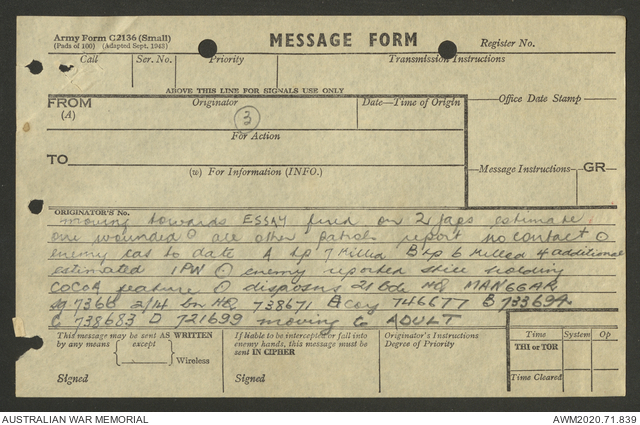 Army Form C2136 (Small)
(Pads of 100) (Adapted Sept. 1943)
MESSAGE FORM
Register No.
Call
Ser. No.
Priority
Transmission Instructions
ABOVE THIS LINE FOR SIGNALS USE ONLY
FROM
(A)
Originator
3
Date—Time of Origin
Office Date Stamp
For Action
TO
(w) For Information (INFO.)
Message Instructions
GR
ORIGINATOR'S No.
moving towards ESSAY fired on 2 Japs estimate
one wounded O all other patrols report no contact O
enemy cas to date A tp 7 killed B tp 6 killed 4 additional
estimated 1PW O enemy reported still holding
COCOA feature O disposns 21 bde HQ MANGGAR
7366 2/14 bn HQ 738671 A coy 746677 B 733694
C 738683 D 721699 moving to ADULT
This message may be sent AS WRITTEN
by any means except
Wireless
Signed
If liable to be intercepted or fall into
enemy hands, this message must be
sent IN CIPHER
Signed
Originator's Instructions
Degree of Priority
Time
System
Op
THI or TOR
Time Cleared
AUSTRALIAN WAR MEMORIAL
AWM2020.71.839